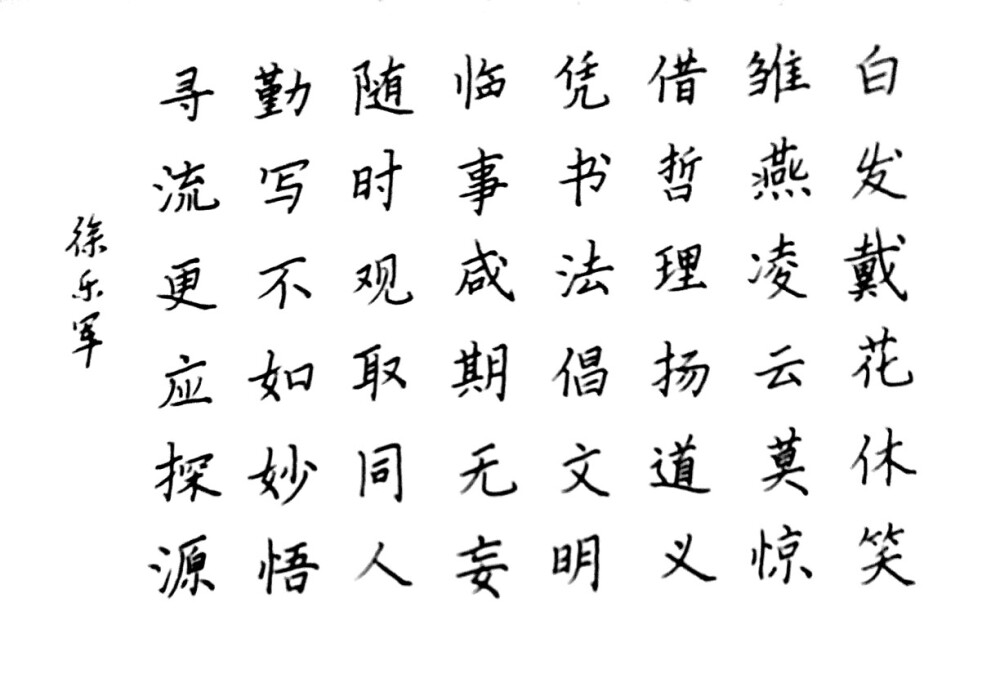 白发戴花休笑
雏燕凌云莫惊
借哲理扬道义
凭书法倡文明
临事咸期无妄
随时观取同人
勤写不如妙悟
寻流更应探源
徐乐军